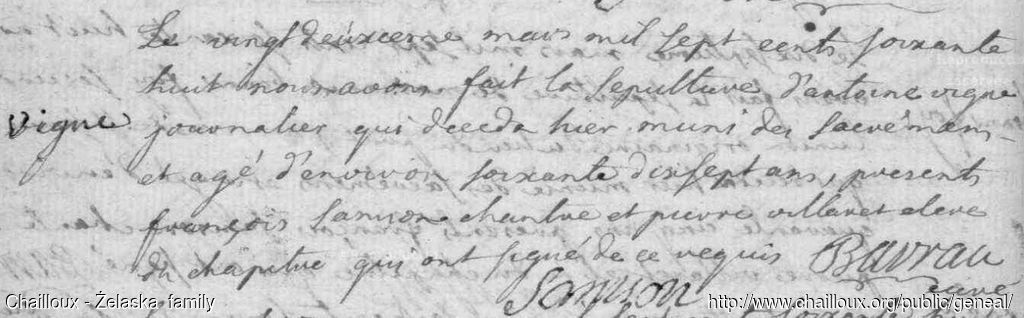 Le vingt deuxieme mars mil sept cents soixante
huit nous avons fait la sepulture d'antoine vigne
Vigne
journalier qui deceda hier muni des sacrémens
et agé d'environ soixante dix sept ans, presents
françois Samson chantre et pierre villaret eleve
du chapitre qui ont signé de ce requis Barrau
Samson curé
Chailloux - Żelaska family
http://www.chailloux.org/public/geneal/